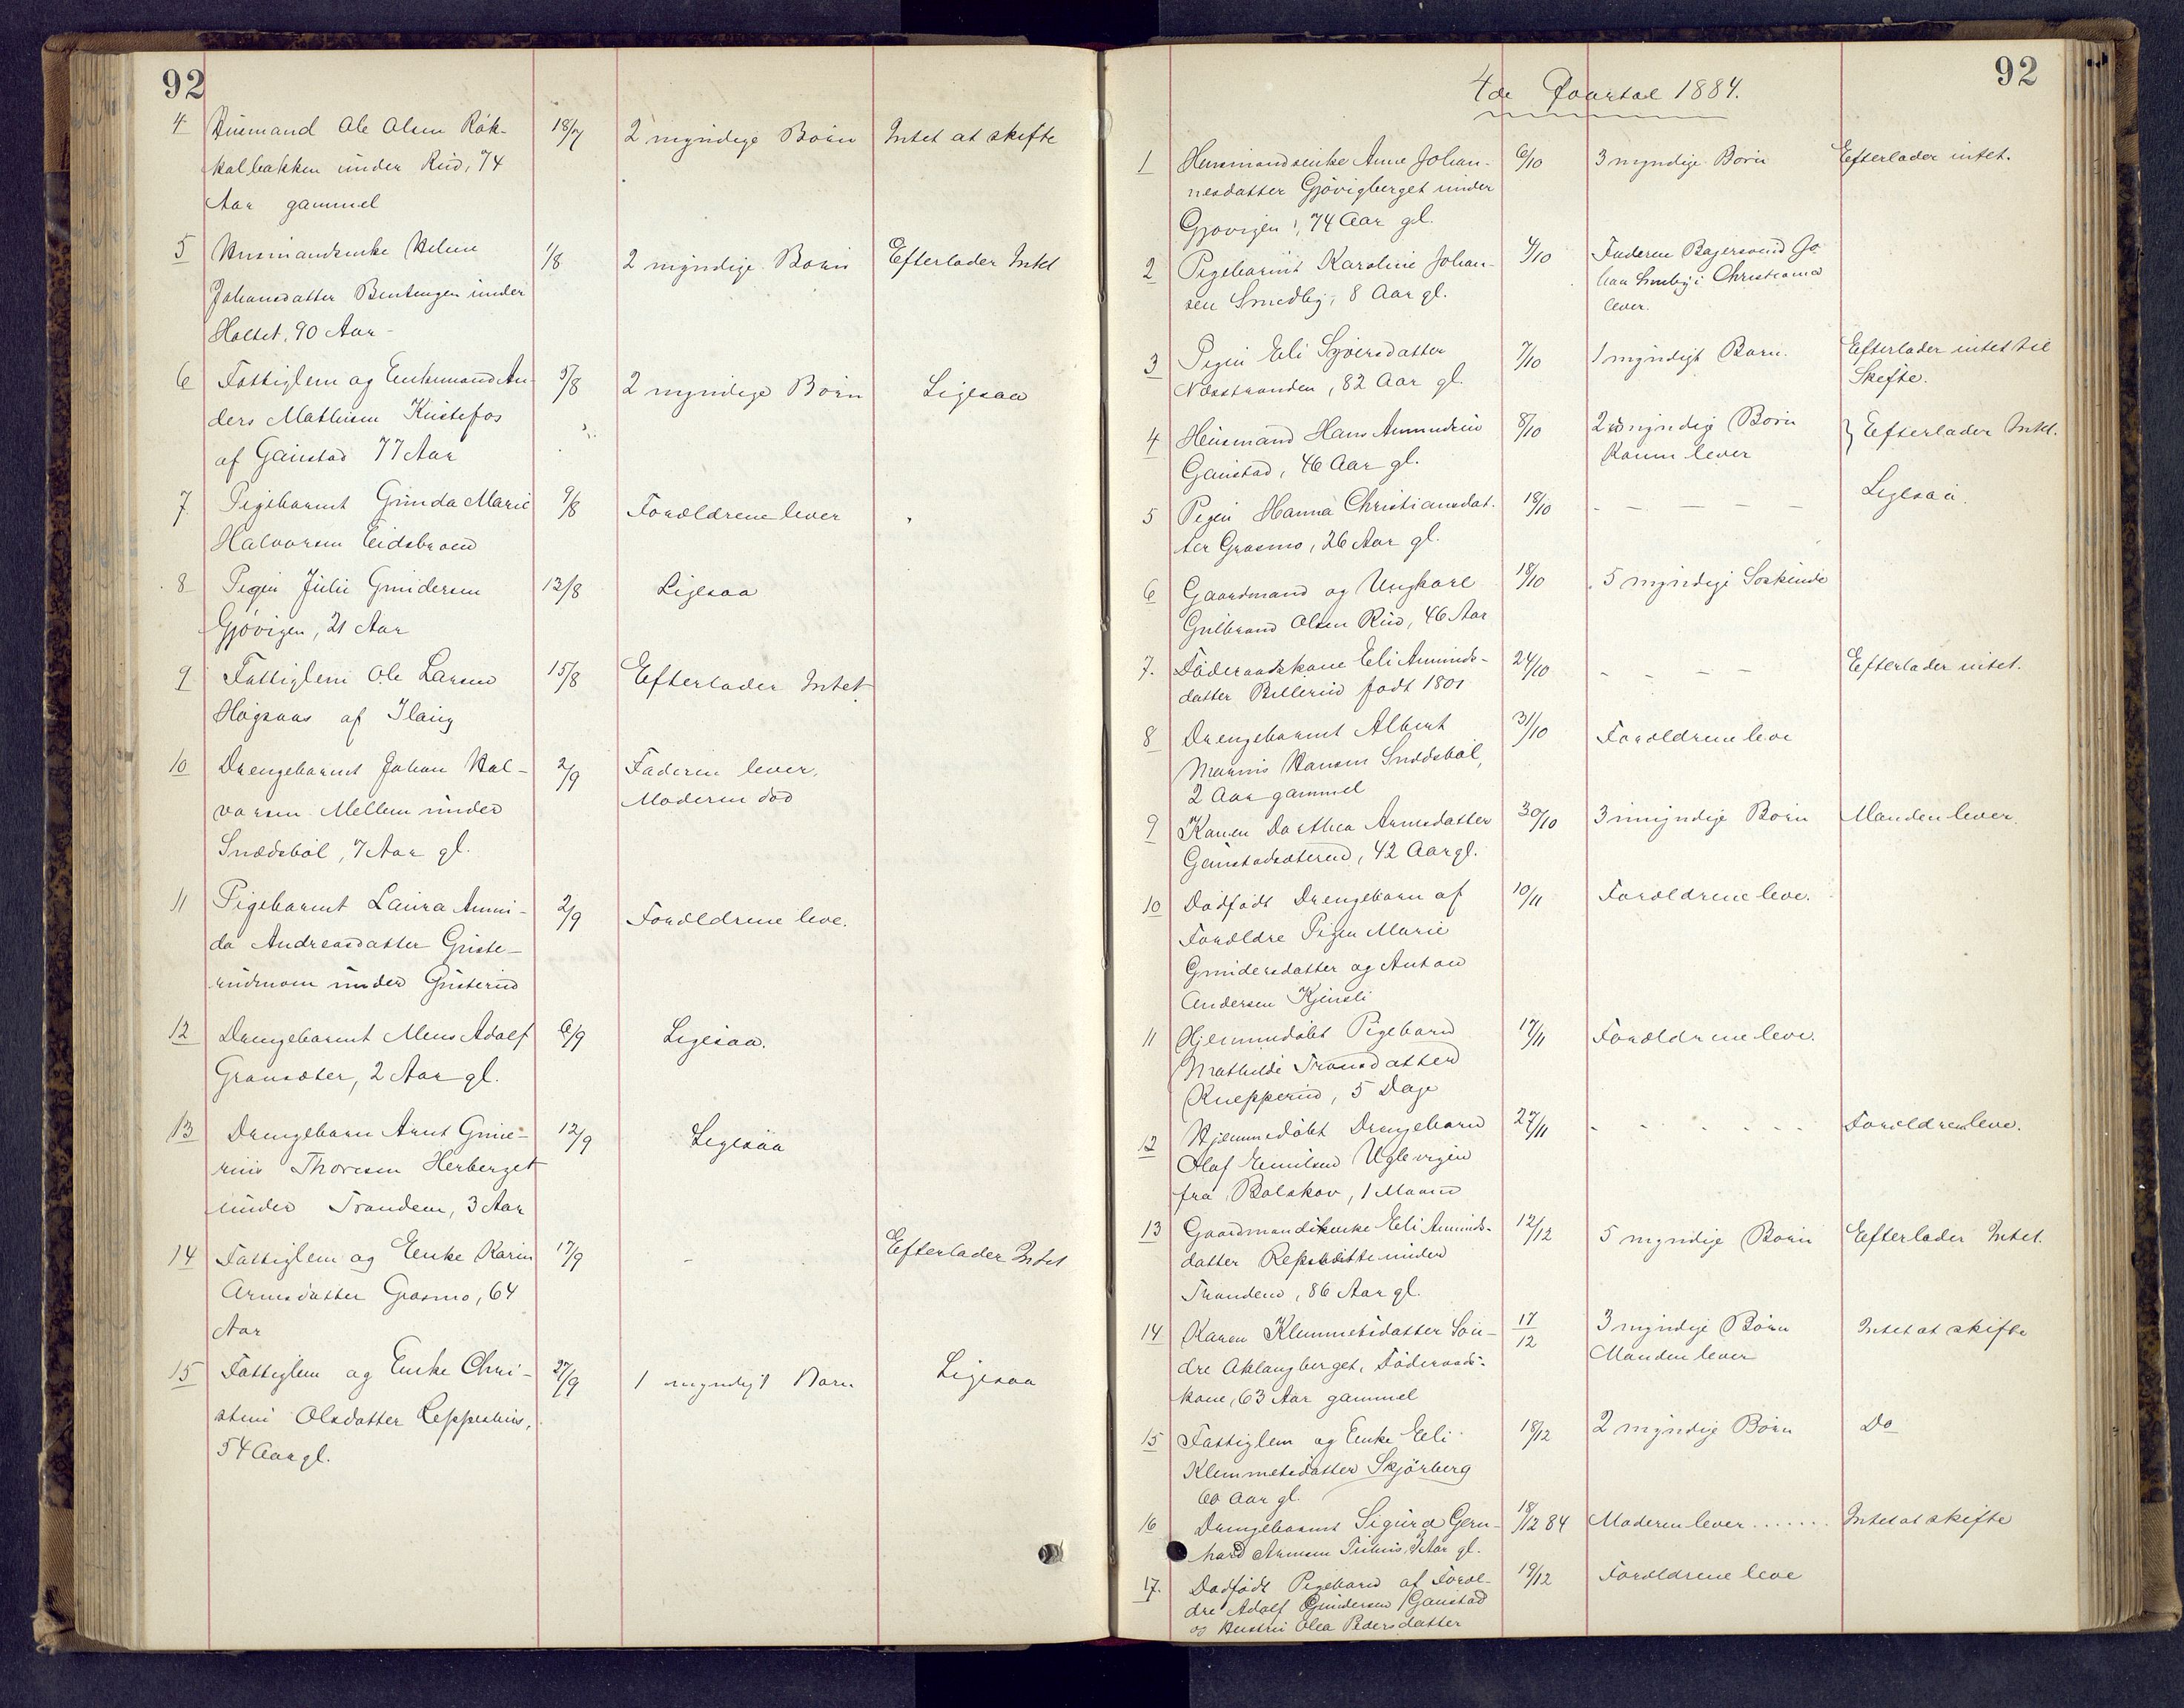 92
4 Husmand Ole Olsen Røk- 18/7 2 myndige Børn Intet at skifte
kolbakken under Rud, 74
Aar gammel
5 Husmandsenke Helene 1/8 2 myndige Børn Efterlader Intet
Johansdatter Bentengen under
Holtet, 90 Aar -
6 Fattiglem og Enkemand An- 5/8 2 myndige Børn Ligesaa
ders Mathisen Kistefos
af Gaustad 77 Aar
7 Pigebarnet Gunda Marie 9/8 Forældrene lever
Halvorsen Eidsbraend
8 Pigen Julie Gundersen 13/8 Ligesaa
Gjøvigen, 21 Aar
9 Fattiglem Ole Larsen 15/8 Efterlader Intet
Høgsaas af Ilaug
10 Drengebarnet Johan Hal- 2/9 Faderen lever,
vorsen Mellem under Moderen død
Snedsbøl, 7 Aar gl.
11 Pigebarnet Laura Amni- 2/9 Forældrene leve.
da Andreasdatter Guste-
rudmoen under Gusterud
12 Drengebarnet Mens Adolf 6/9 Ligesaa.
Gransæter, 2 Aar gl.
13 Drengebarn Arnt Gune- 12/9 Ligesaa
rius Thoresen Herberget
under Trandem, 3 Aar
14 Fattiglem og Enke Karin 17/9 - Efterlader Intet
Arnesdatter Grasmo, 64
Aar
15 Fattiglem og Enke Chri- 27/9 1 myndigt Barn Ligesaa
stine Olsdatter Leppershus,
54 Aar gl.
92
4de Quartal 1884.
1 Husmandsenke Anne Johan- 6/10 3 myndige Børn Efterlader intet.
nesdatter Gjøvigberget under
Gjøvigen, 74 Aar gl.
2 Pigebarnet Karoline Johan- 4/10 Faderen Bagersvend Jo-
sen Smedby, 8 Aar gl. han Smeby i Christiania
lever.
3 Pigen Eli Syversdatter 7/10 1 myndigt Barn. Efterlader intet til
Næsstranden, 82 Aar gl. Skifte.
4 Husmand Hans Amundsen 8/10 2 umyndige Børn } Efterlader Intet.
Gaustad, 46 Aar gl. Konen lever
5 Pigen Hanna Christiansdat- 18/10 - - - - - Ligesaa.
ter Grasmo, 26 Aar gl.
6 Gaardmand og Ungkarl 18/10 5 myndige Søskende
Gulbrand Olsen Rud, 46 Aar
7. Føderaadskone Eli Amunds- 24/10 - - - - Efterlader intet.
datter Billerud født 1801
8 Drengebarnet Albert 31/10 Forældrene leve
Marius Hansen Snedsbøl,
2 Aar gammel
9 Konen Dorthea Arnesdatter 30/10 3 umyndige Børn Manden lever.
Gaustadsæteren, 42 Aar gl.
10 Dødfødt Drengebarn af 10/11 Forældrene leve.
Forældre Pigen Marie
Gundersdatter og Anton
Andersen Kjensli
11 Hjemmedøbt Pigebarn 17/11 Forældrene leve.
Mathilde Transdatter
Knepperud, 5 Dage
12 Hjemmedøbt Drengebarn 27/11 - - - - - - Forældrene leve.
Olaf Emilsen Uglevigen
fra Bolskov, 1 Maaned
13 Gaardmandsenke Eli Amunds- 12/12 5 myndige Børn Efterlader Intet.
datter under
Trandem, 86 Aar gl.
14 Karen Klemmetsdatter Søn- 17/12 3 myndige Børn Intet at skifte
dre Aklangberget, Føderaads- Manden lever
kone, 63 Aar gammel
15 Fattiglem og Enke Eli 18/12 2 myndige Børn Do
Klemmetsdatter Skjørberg
60 Aar gl.
16 Drengebarnet Sigurd Gern- 18/12 84 Moderen lever ....... Intet at skifte
hard Arnesen 3 Aar gl.
17. Dødfødt Pigebarn af Foræl- 19/12 Forældrene leve
dre Adolf Gundersen Gaustad
og Hustru Olea Pedersdatter